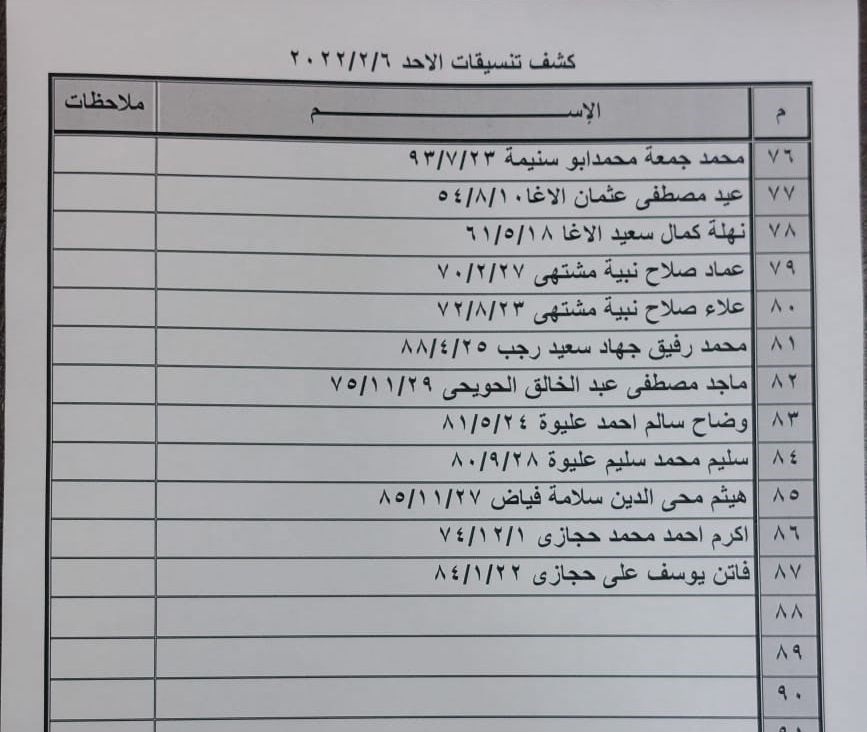 كشف تنسيقات الاحد ٢٠٢٢/٢/٦
م الإســــــــم ملاحظات
٧٦ محمد جمعة محمدابو سنيمة ٩٣/٧/٢٣
٧٧ عيد مصطفى عثمان الاغا ٥٤/٨/١٠
٧٨ نهلة كمال سعيد الاغا ٦١/٥/١٨
٧٩ عماد صلاح نبية مشتهى ٧٠/٢/٢٧
٨٠ علاء صلاح نبية مشتهى ٧٢/٨/٢٣
٨١ محمد رفيق جهاد سعيد رجب ٨٨/٤/٢٥
٨٢ ماجد مصطفى عبد الخالق الحويحى ٧٥/١١/٢٩
٨٣ وضاح سالم احمد عليوة ٨١/٥/٢٤
٨٤ سليم محمد سليم عليوة ٨٠/٩/٢٨
٨٥ هيثم محى الدين سلامة فياض ٨٥/١١/٢٧
٨٦ اكرم احمد محمد حجازى ٧٤/١٢/١
٨٧ فاتن يوسف على حجازى ٨٤/١/٢٢
٨٨
٨٩
٩٠